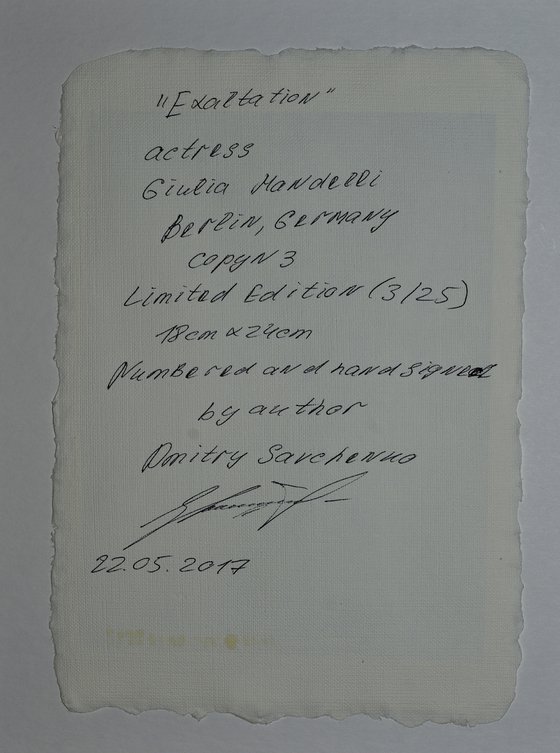 "Exaltation"
actress
Giulia Mandelli
Berlin, Germany
copy N 3
Limited Edition (3/25)
18cm x 24cm
Numbered and hand signed
by author
Dmitry Savchenko
22.05.2017